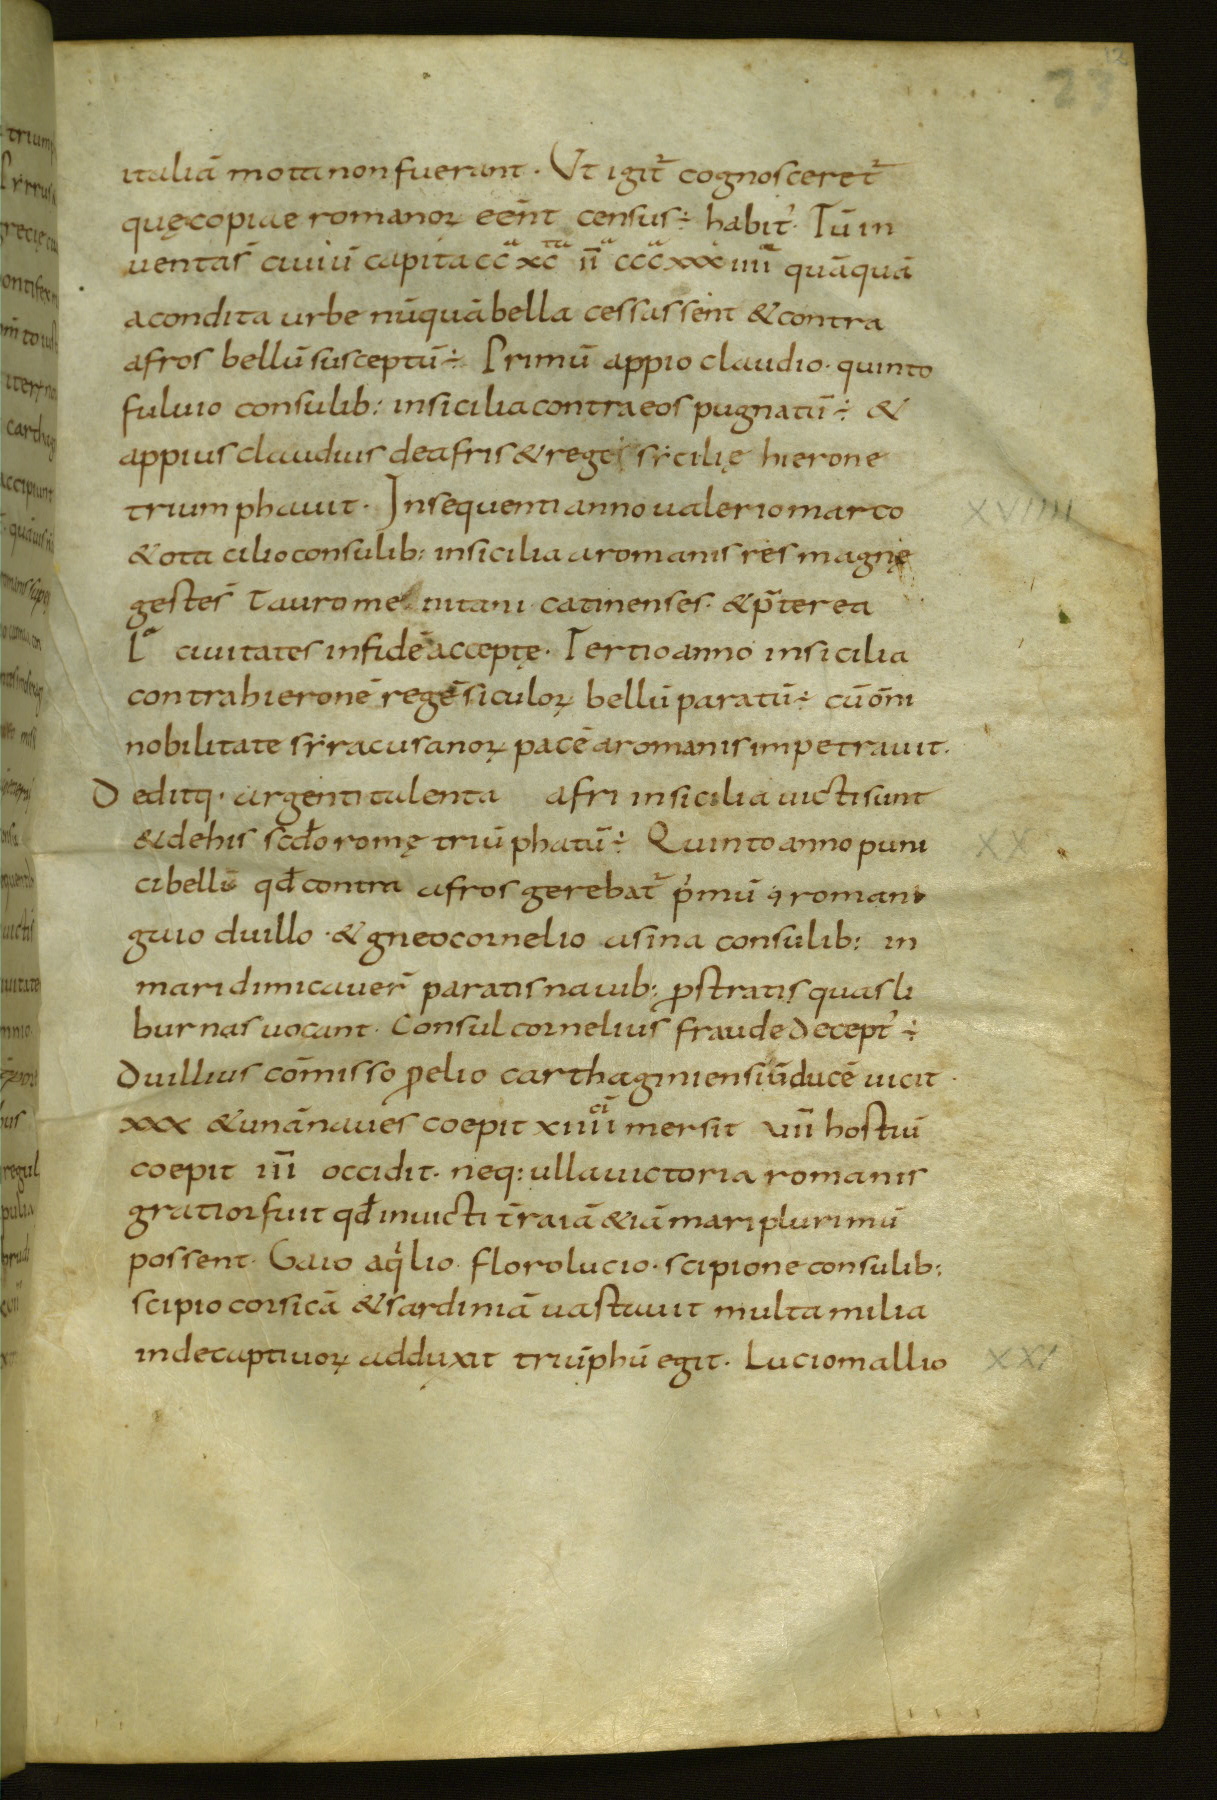 23
12
italiā mota non fuerant. Ut igit̄ cognosceret̄
quę copiae romanoꝝ eēnt census ÷ habit᷒. Tū in
uentas̄ ciuiū capita cc̄ xc̄ īī ccc̄xxxiiii quāquā
a condita urbe nūquā bella cessassent & contra
afros bellū susceptū ÷ Primū appio claudio. quinto
fuluio consulib: in sicilia contra eos pugnatū ÷ &
appius claudius de afris & rege sẏcilię hierone
triumphauit. In sequenti anno ualerio marco
XVIIII
& ota cilio consulib: in sicilia a romanis res magnę
gestes̄ tauromenitani catinenses. & p̄terea
Lᵃ ciuitates in fidē acceptę. Tertio anno in sicilia
contra hieronē regē siculoꝝ bellū paratū ÷ cū om̄i
nobilitate sẏracusanoꝝ pacē a romanis impetrauit.
Deditq. argenti talenta afri in sicilia uicti sunt
& de his scdo romę triūphatū ÷ Quinto anno puni
XX
ci belli qđ contra afros gerebat̄ p'mū romani
gaio duillo. & gneo cornelio asina consulib: in
mari dimicauer̄ paratis nauib: ꝓstratis quas li
burnas uocant. Consul cornelius fraude decept᷒ ÷
Duillius cōmisso ꝓelio carthaginiensiū ducē uicit.
xxx & unā naues coepit xiiii mersit uīī hostiū
coepit iīī occidit. neq: ulla uictoria romanis
gratior fuit qđ inuicti t̄ra iā & iā mari plurimū
possent. Gaio aq'lio floro lucio. scipione consulib:
scipio corsicā & sardiniā uastauit multa milia
inde captiuoꝝ adduxit triūphū egit. Lucio mallio
XXI